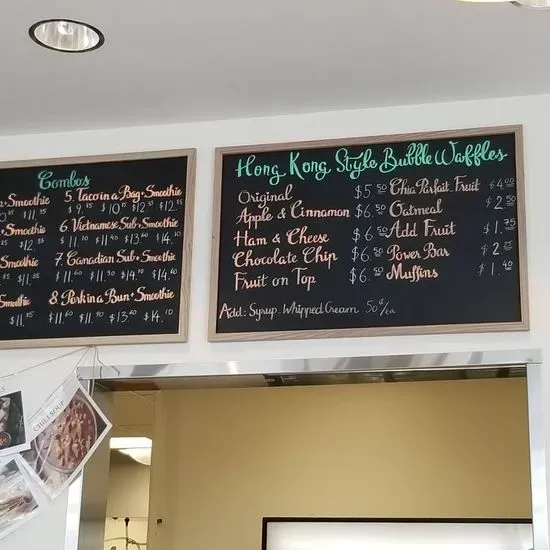 Combos
+ Smoothie
$10.85 $11.35
+ Smoothie
$12.85
Smoothie
$11.35
Smoothie
$11.15
5. Taco in a Bag + Smoothie
$9.85 $10.15 $12.35 $12.85
6. Vietnamese Sub + Smoothie
$11.10 $11.40 $13.60 $14.10
7. Canadian Sub + Smoothie
$11.60 $11.90 $14.10 $14.60
8 Pork in a Bun + Smoothie
$11.60 $11.90 $13.60 $14.10
Hong Kong Style Bubble Waffles
Original $5.50
Apple & Cinnamon $6.50
Ham & Cheese $6.50
Chocolate Chip $6.50
Fruit on Top $6.50
Chia Parfait Fruit $4.00
Oatmeal $2.50
Add Fruit $1.75
Power Bar $2.75
Muffins $1.40
Add: Syrup. Whipped Cream .50¢/ea
CHILI SOUP